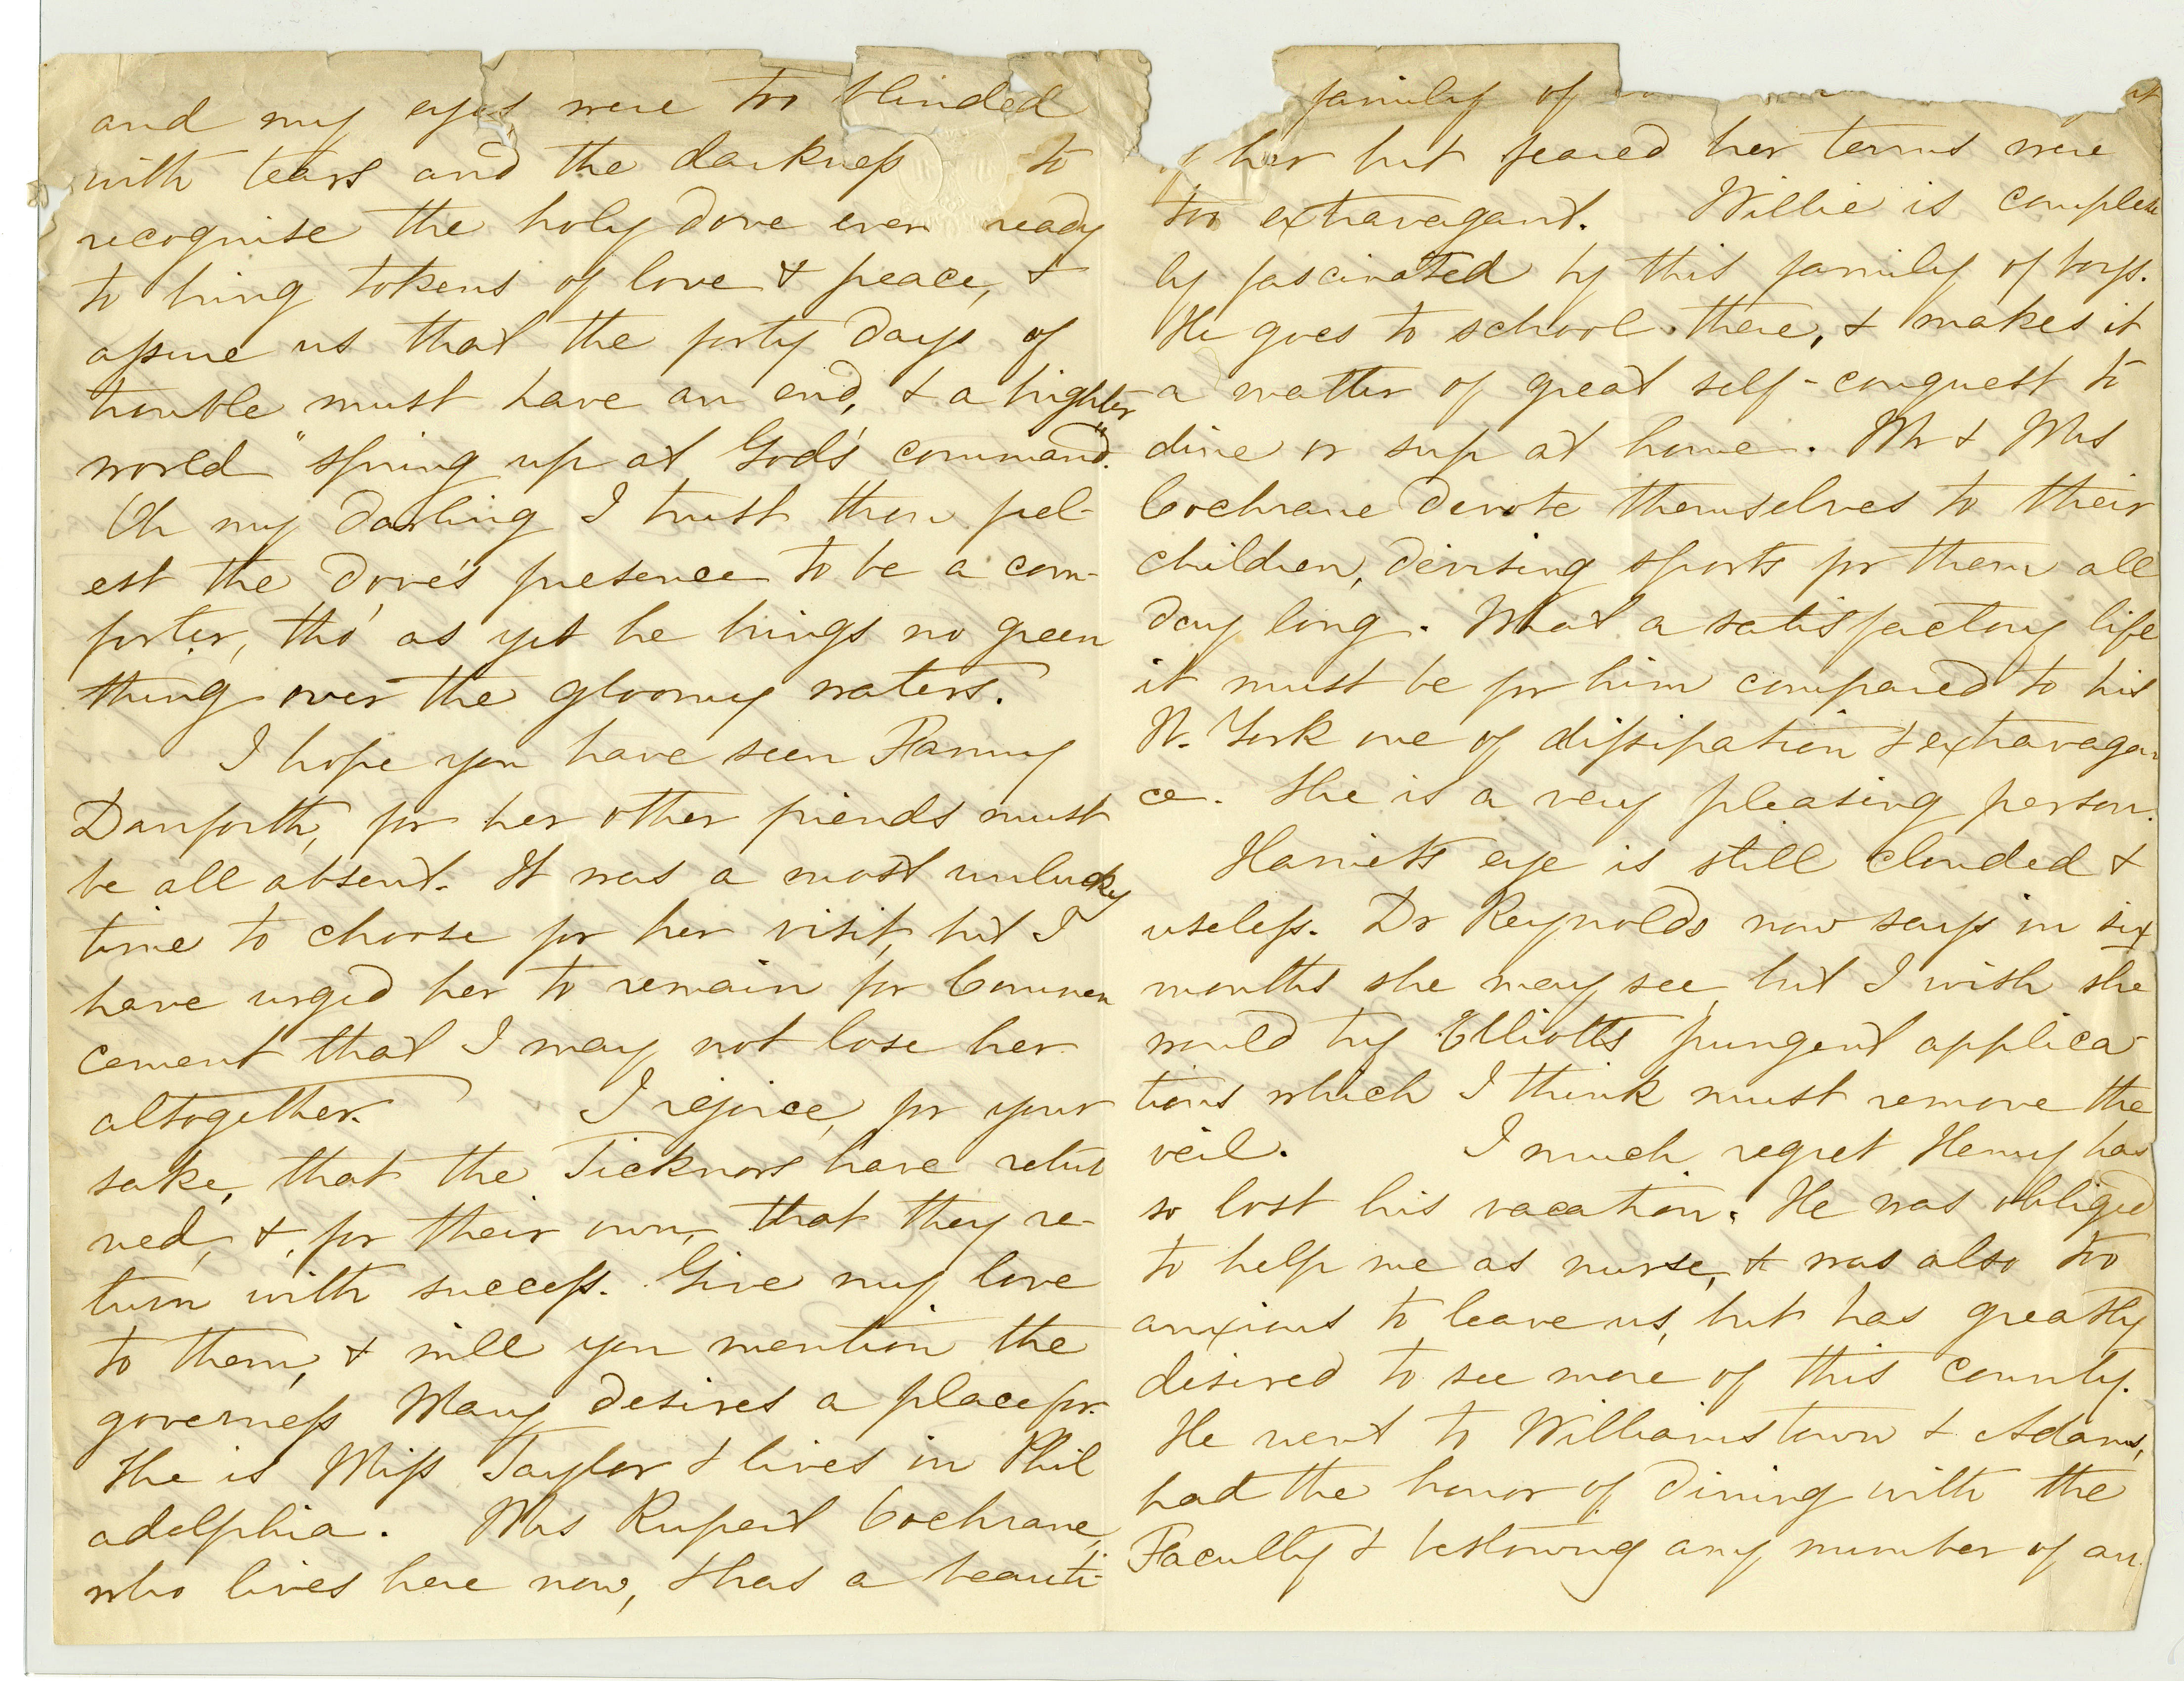 and my eyes were too blinded
with tears and the darkness to
recognise the holy dove ever ready
to bring tokens of love & peace, &
assure us that the forty days of
trouble must have an end, & a brighter
world "spring up at God's command."
Oh my darling I trust thou feel-
est the dove's presence to be a com-
forter, tho' as yet he brings no green
thing over the gloomy waters.
I hope you have seen Fanny
Danforth, for her other friends must
be all absent. It was a most unlucky
time to choose for her visit, but I
have urged her to remain for Commen
cement that I may not lose her
altogether. I rejoice, for your
sake, that the Ticknors have retur
ned, & for their own, that they re-
turn with success. Give my love
to them, & will you mention the
governess Mary desires a place for.
She is Miss Taylor & lives in Phil
adelphia. Mrs Rupert Cochrane,
who lives here now, & has a beauti-
family of
her but feared her terms were
too extravagant. Willie is complete
ly fascinated by this family of boys.
He goes to school there, & makes it
a matter of great self-conquest to
dine or sup at home. Mr & Mrs
Cochrane devote themselves to their
children, devising sports for them all
day long. What a satisfactory life
it must be for him compared to his
N. York one of dissipation & extravagan
ce. She is a very pleasing person.
Harriet's eye is still clouded &
useless. Dr Reynolds now says in six
months she may see, but I wish she
would try Elliott's pungent applica-
tions which I think must remove the
veil. I much regret Henry has
so lost his vacation. He was obliged
to help me as nurse, & was also too
anxious to leave us, but has greatly
desired to see more of this county.
He went to Williamstown & Adams,
had the honor of dining with the
Faculty & bestowing any number of au